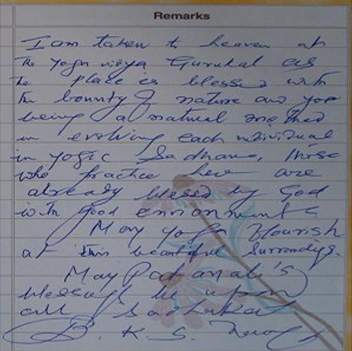 Remarks
I am taken to heaven at
the Yoga vidya Gurukul as
the place is blessed with
the bounty of nature and yoga
being a natural method
in evolving each individual
in yogic Sadhana, those
who practice here are
already blessed by God
with good environments
May yoga flourish
at this beautiful surroundings.
May Patanjali's
blessings be upon
all Sadhakas
B. K. S.